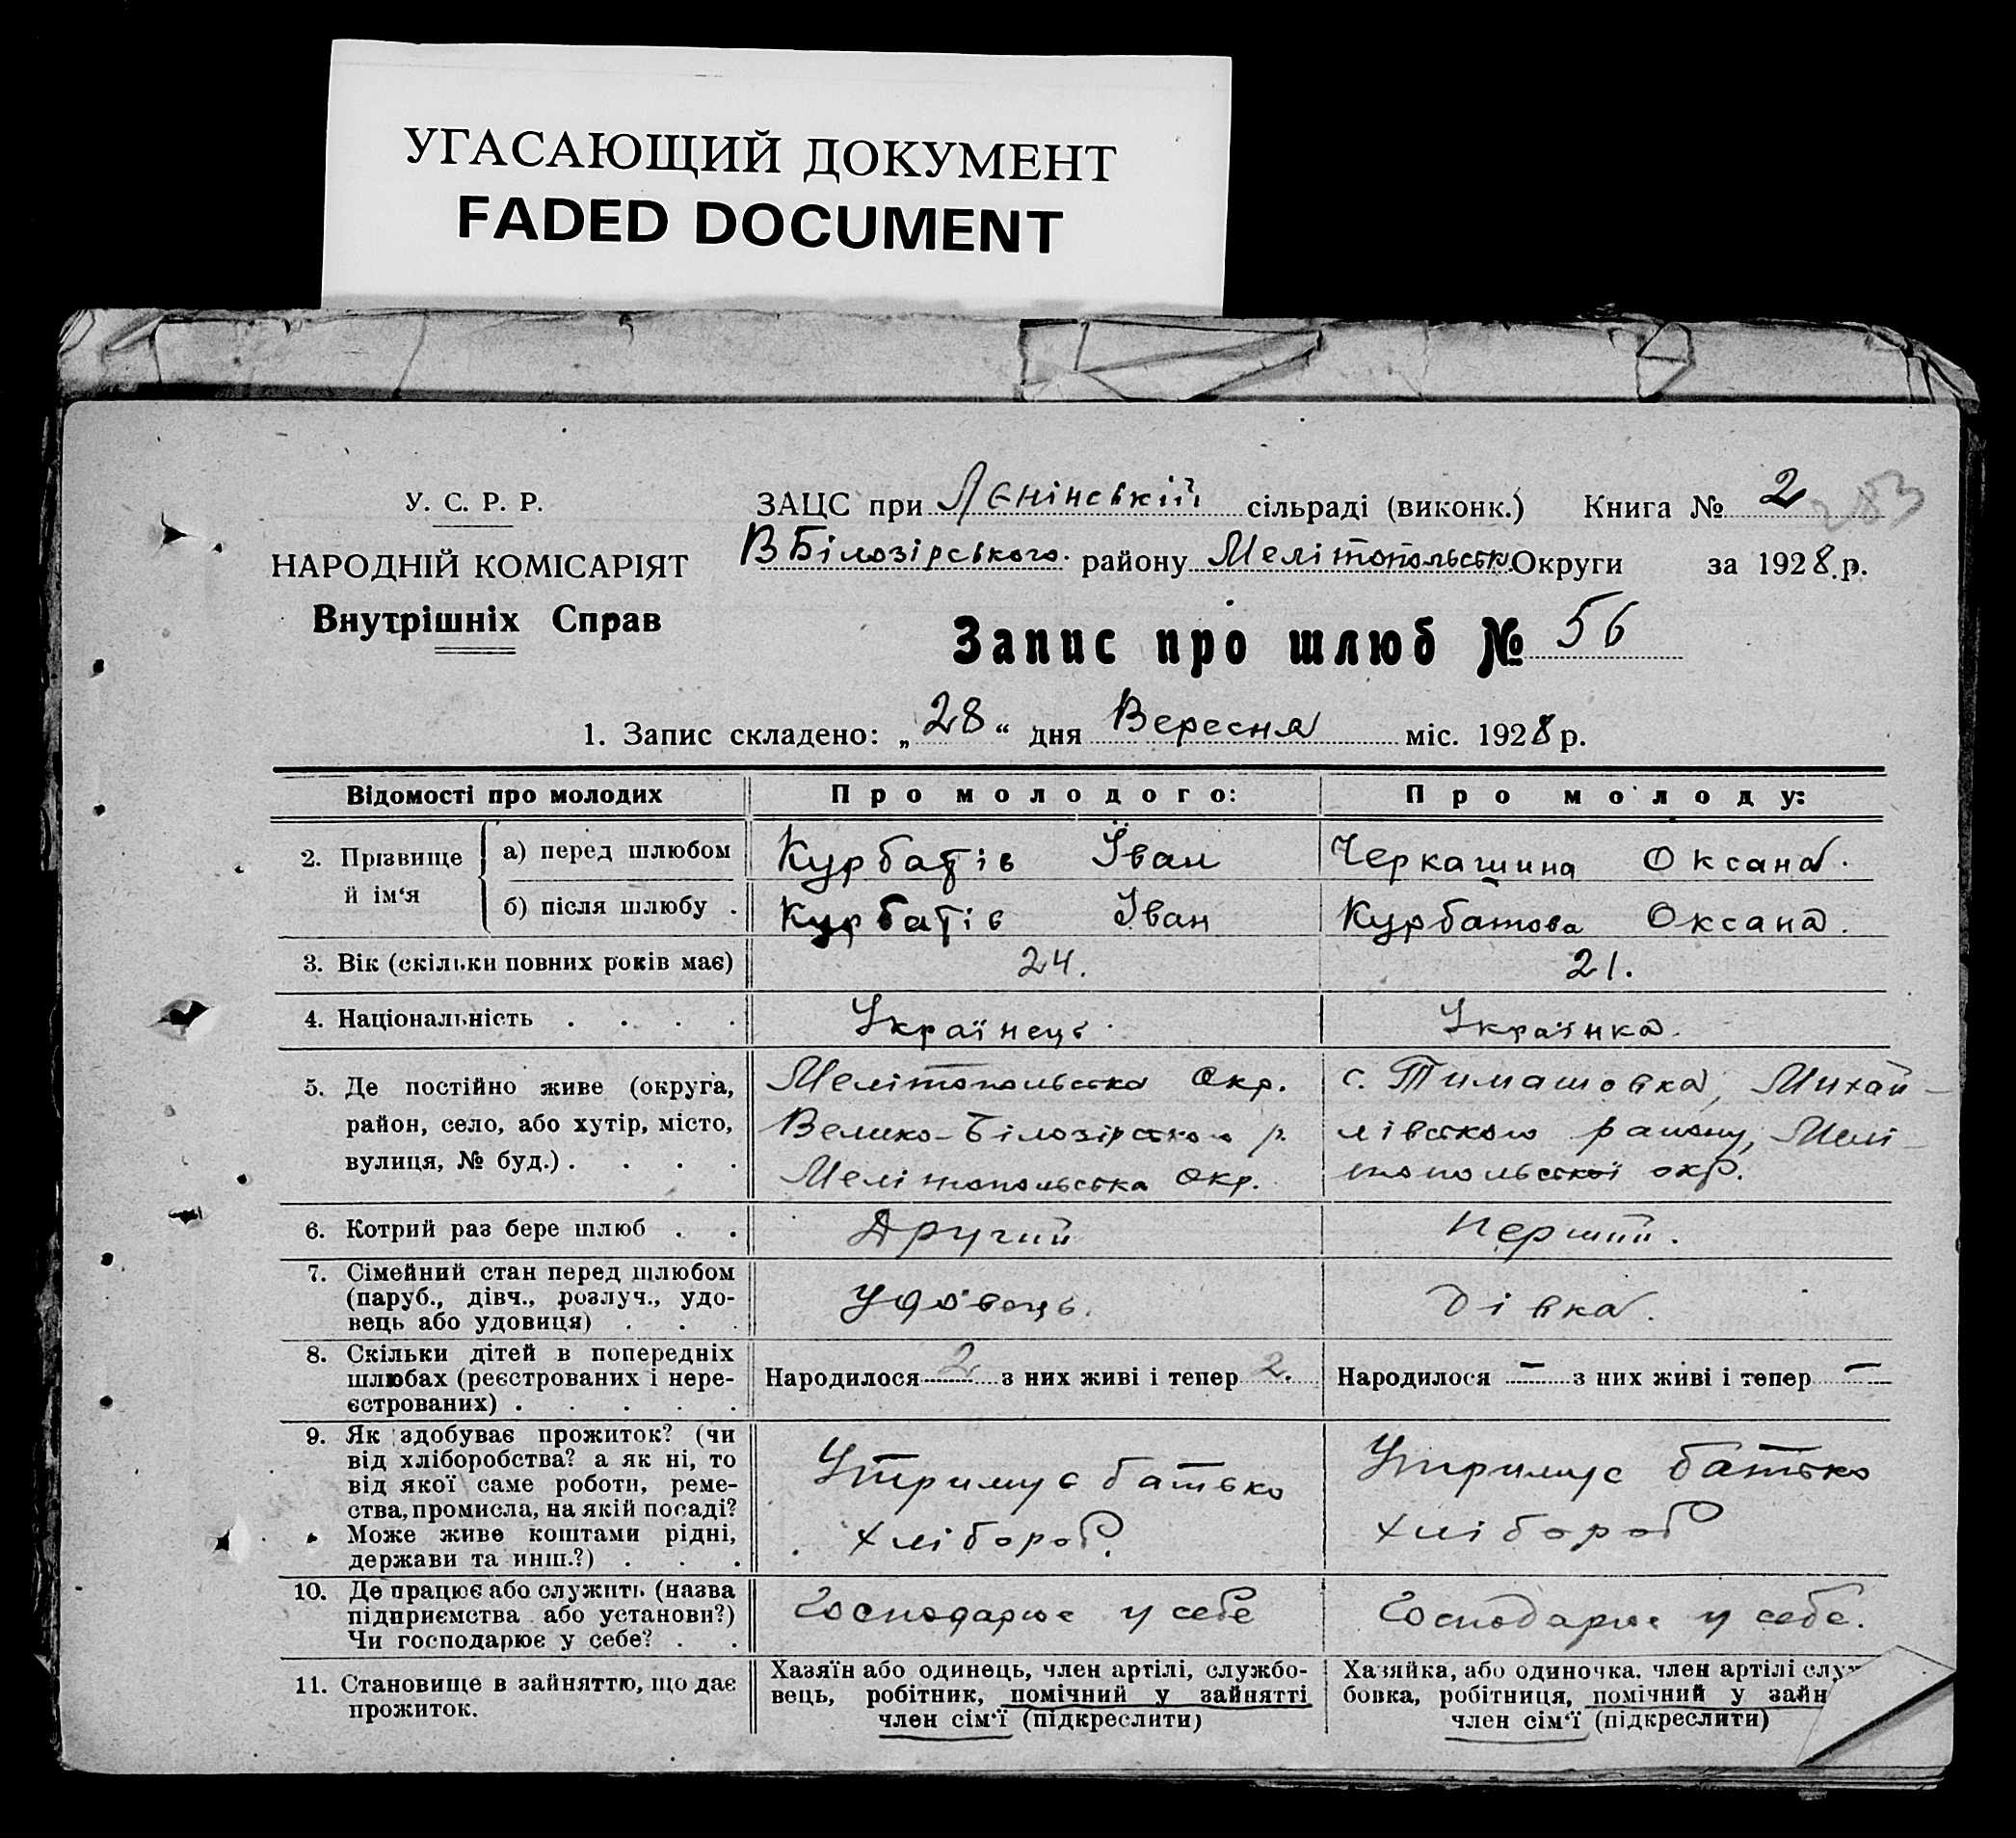 УГАСАЮЩИЙ ДОКУМЕНТ
FADED DOCUMENT
У. С. Р. Р.
НАРОДНІЙ КОМІСАРІЯТ
Внутрішніх Справ
ЗАЦС при Лєнінській сільраді (виконк.) Книга № 2 283
В Білозірського району Мелітопольськ. Округи за 1928 р.
Запис про шлюб № 56
1. Запис складено: „28“ дня Вересня міс. 1928 р.
Відомості про молодих
Про молодого:
Про молоду:
2. Прізвище й ім‘я
а) перед шлюбом
Курбатів Іван
Черкашина Оксана.
б) після шлюбу .
Курбатів Іван
Курбатова Оксана.
3. Вік (скільки повних років має)
24.
21.
4. Національність . . . .
Українець.
Українка.
5. Де постійно живе (округа,
район, село, або хутір, місто,
вулиця, № буд.) . . . .
Мелітопольська Окр.
Велико-Білозірського р.
Мелітопольська Окр.
с. Тимашовка, Михай-
лівського району, Мелі-
топольської окр.
6. Котрий раз бере шлюб . .
Другий
Перший.
7. Сімейний стан перед шлюбом
(паруб., дівч., розлуч., удо-
вець або удовиця) . . .
Удовець.
Дівка.
8. Скільки дітей в попередніх
шлюбах (реєстрованих і нере-
єстрованих) . . . . .
Народилося 2 з них живі і тепер 2.
Народилося – з них живі і тепер –
9. Як здобуває прожиток? (чи
від хліборобства? а як ні, то
від якої саме роботи, реме-
ства, промисла, на якій посаді?
Може живе коштами рідні,
держави та инш.?) . . .
Утримує батько
хлібороб.
Утримує батько
хлібороб
10. Де працює або служить (назва
підприємства або установи?)
Чи господарює у себе? . .
Господарює у себе
Господарює у себе.
11. Становище в зайняттю, що дає
прожиток.
Хазяїн або одинець, член артілі, службо-
вець, робітник, помічний у зайнятті
член сім‘ї (підкреслити)
Хазяйка, або одиночка, член артілі служ
бовка, робітниця, помічний у зайн
член сім‘ї (підкреслити)